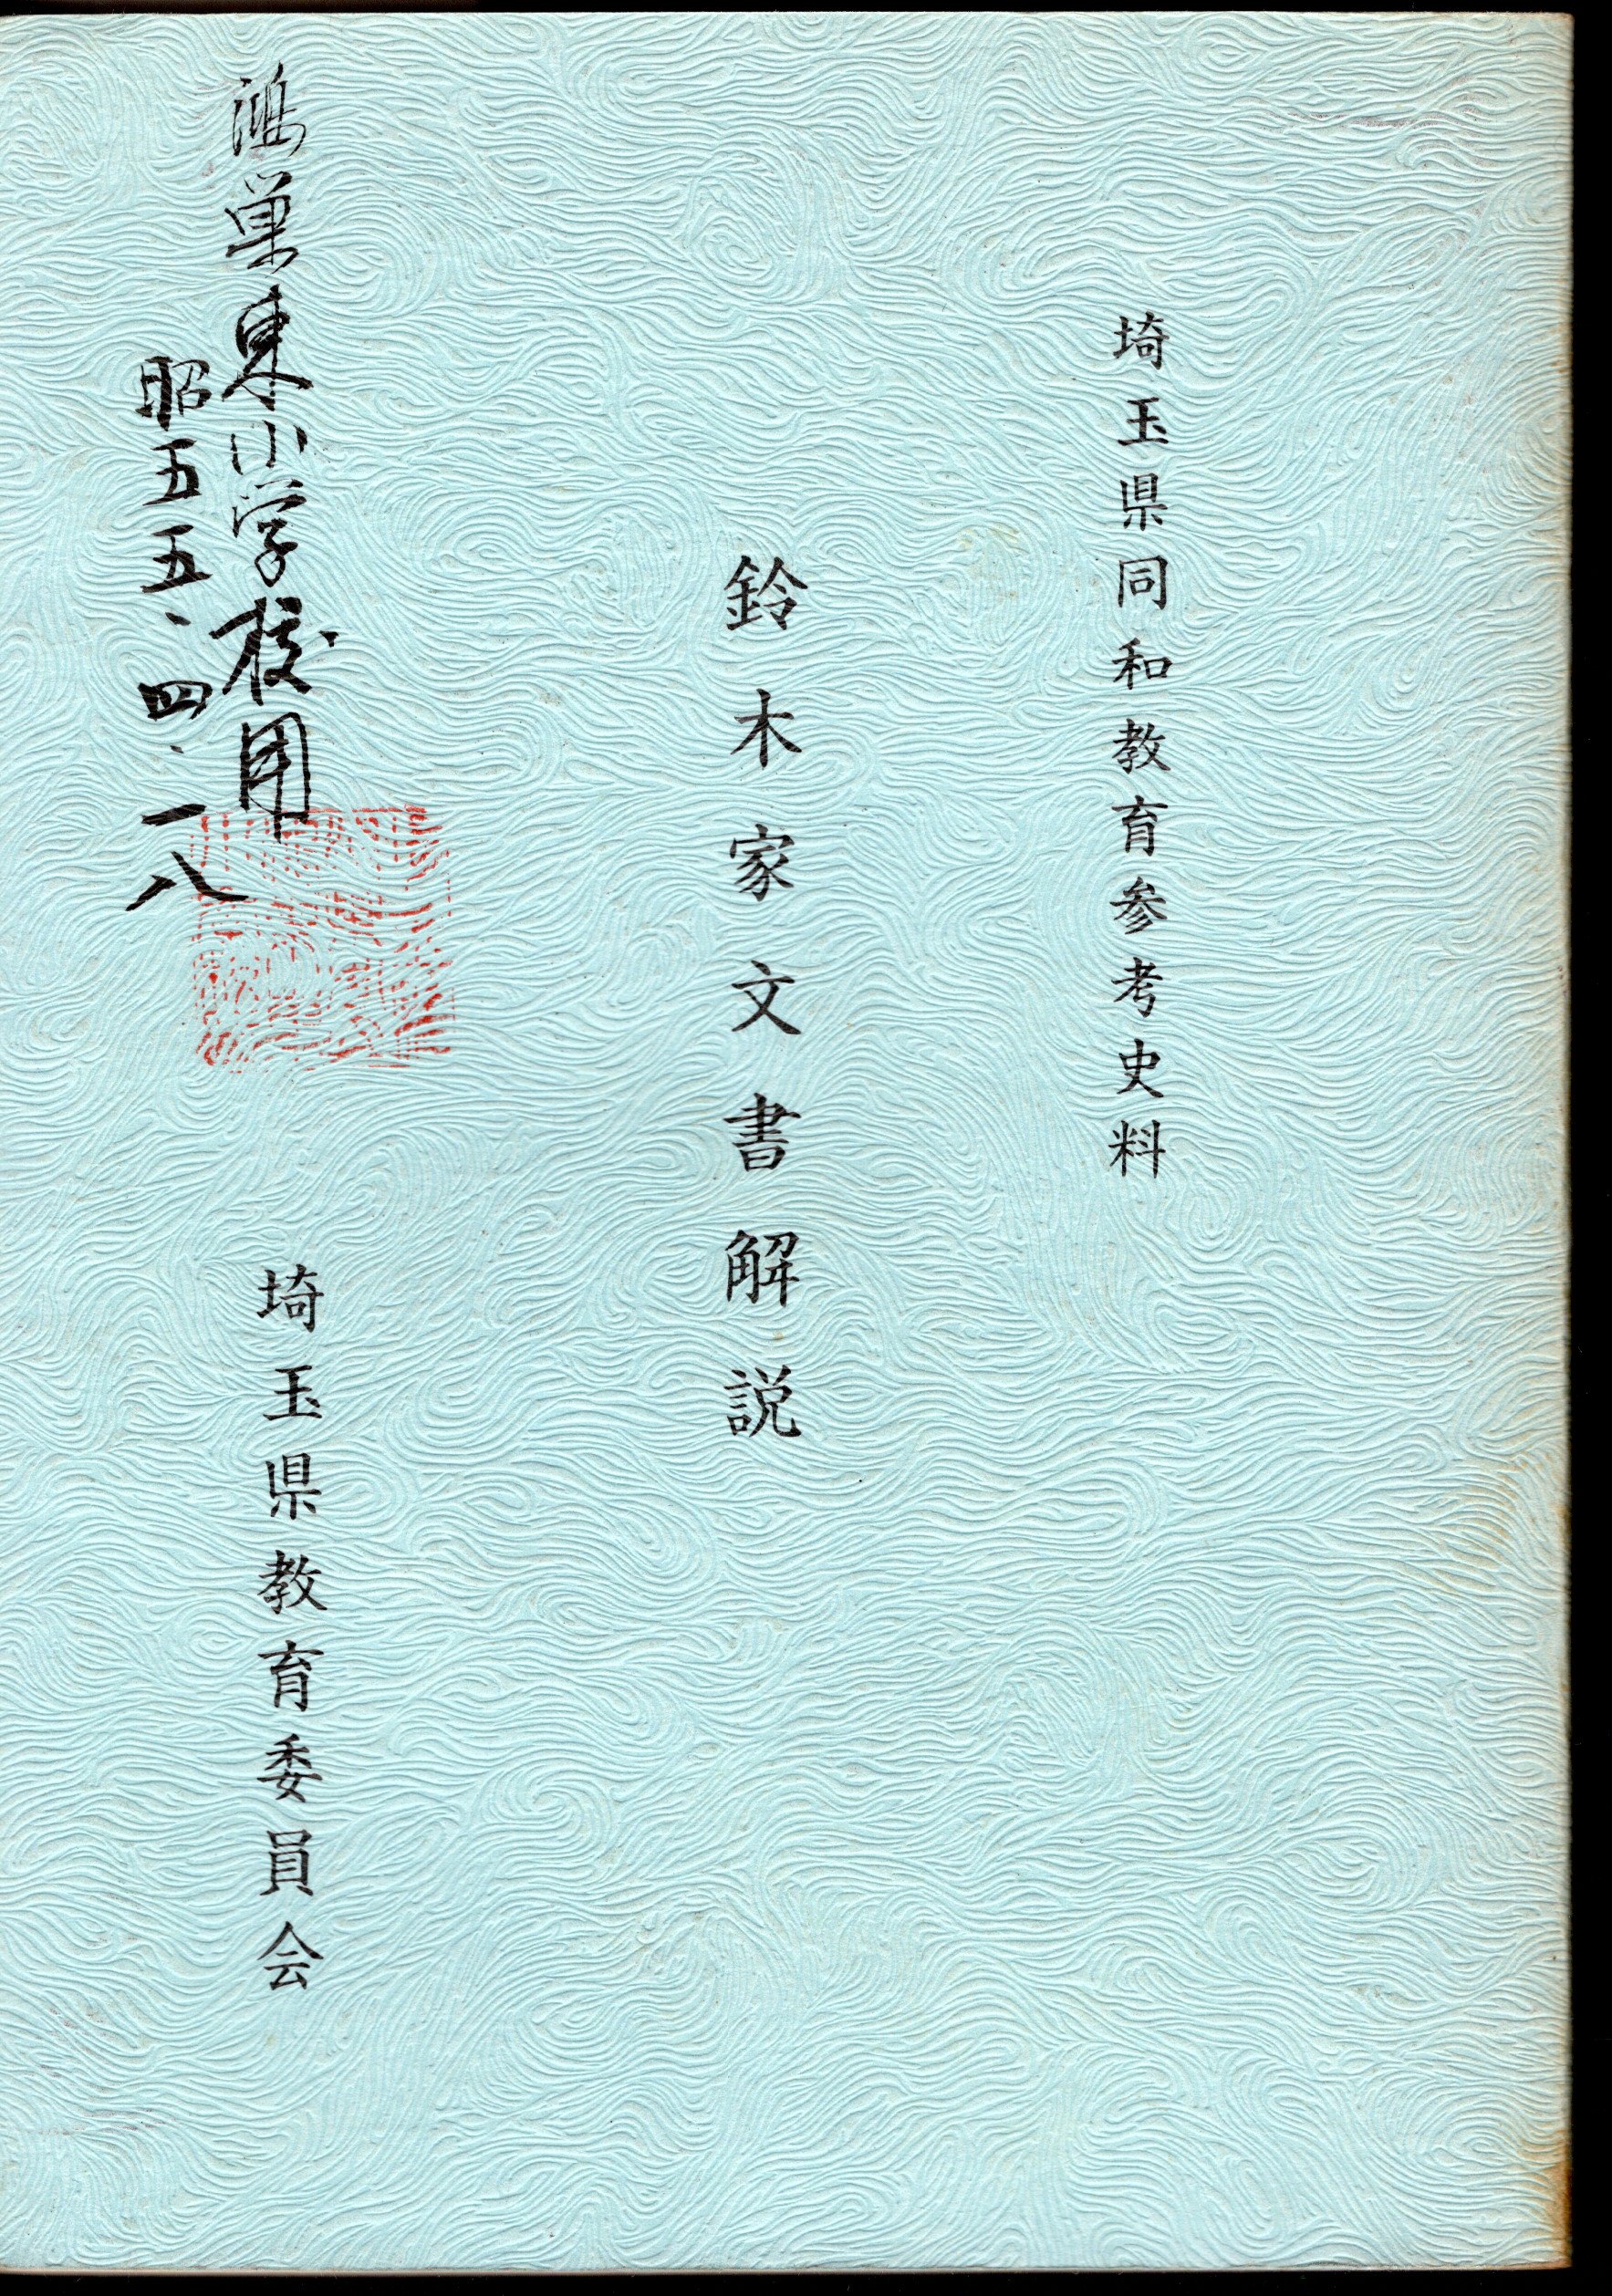 埼玉県同和教育参考史料
鈴木家文書解説
埼玉県教育委員会
鴻巣東小学校用
昭五五、四、一八